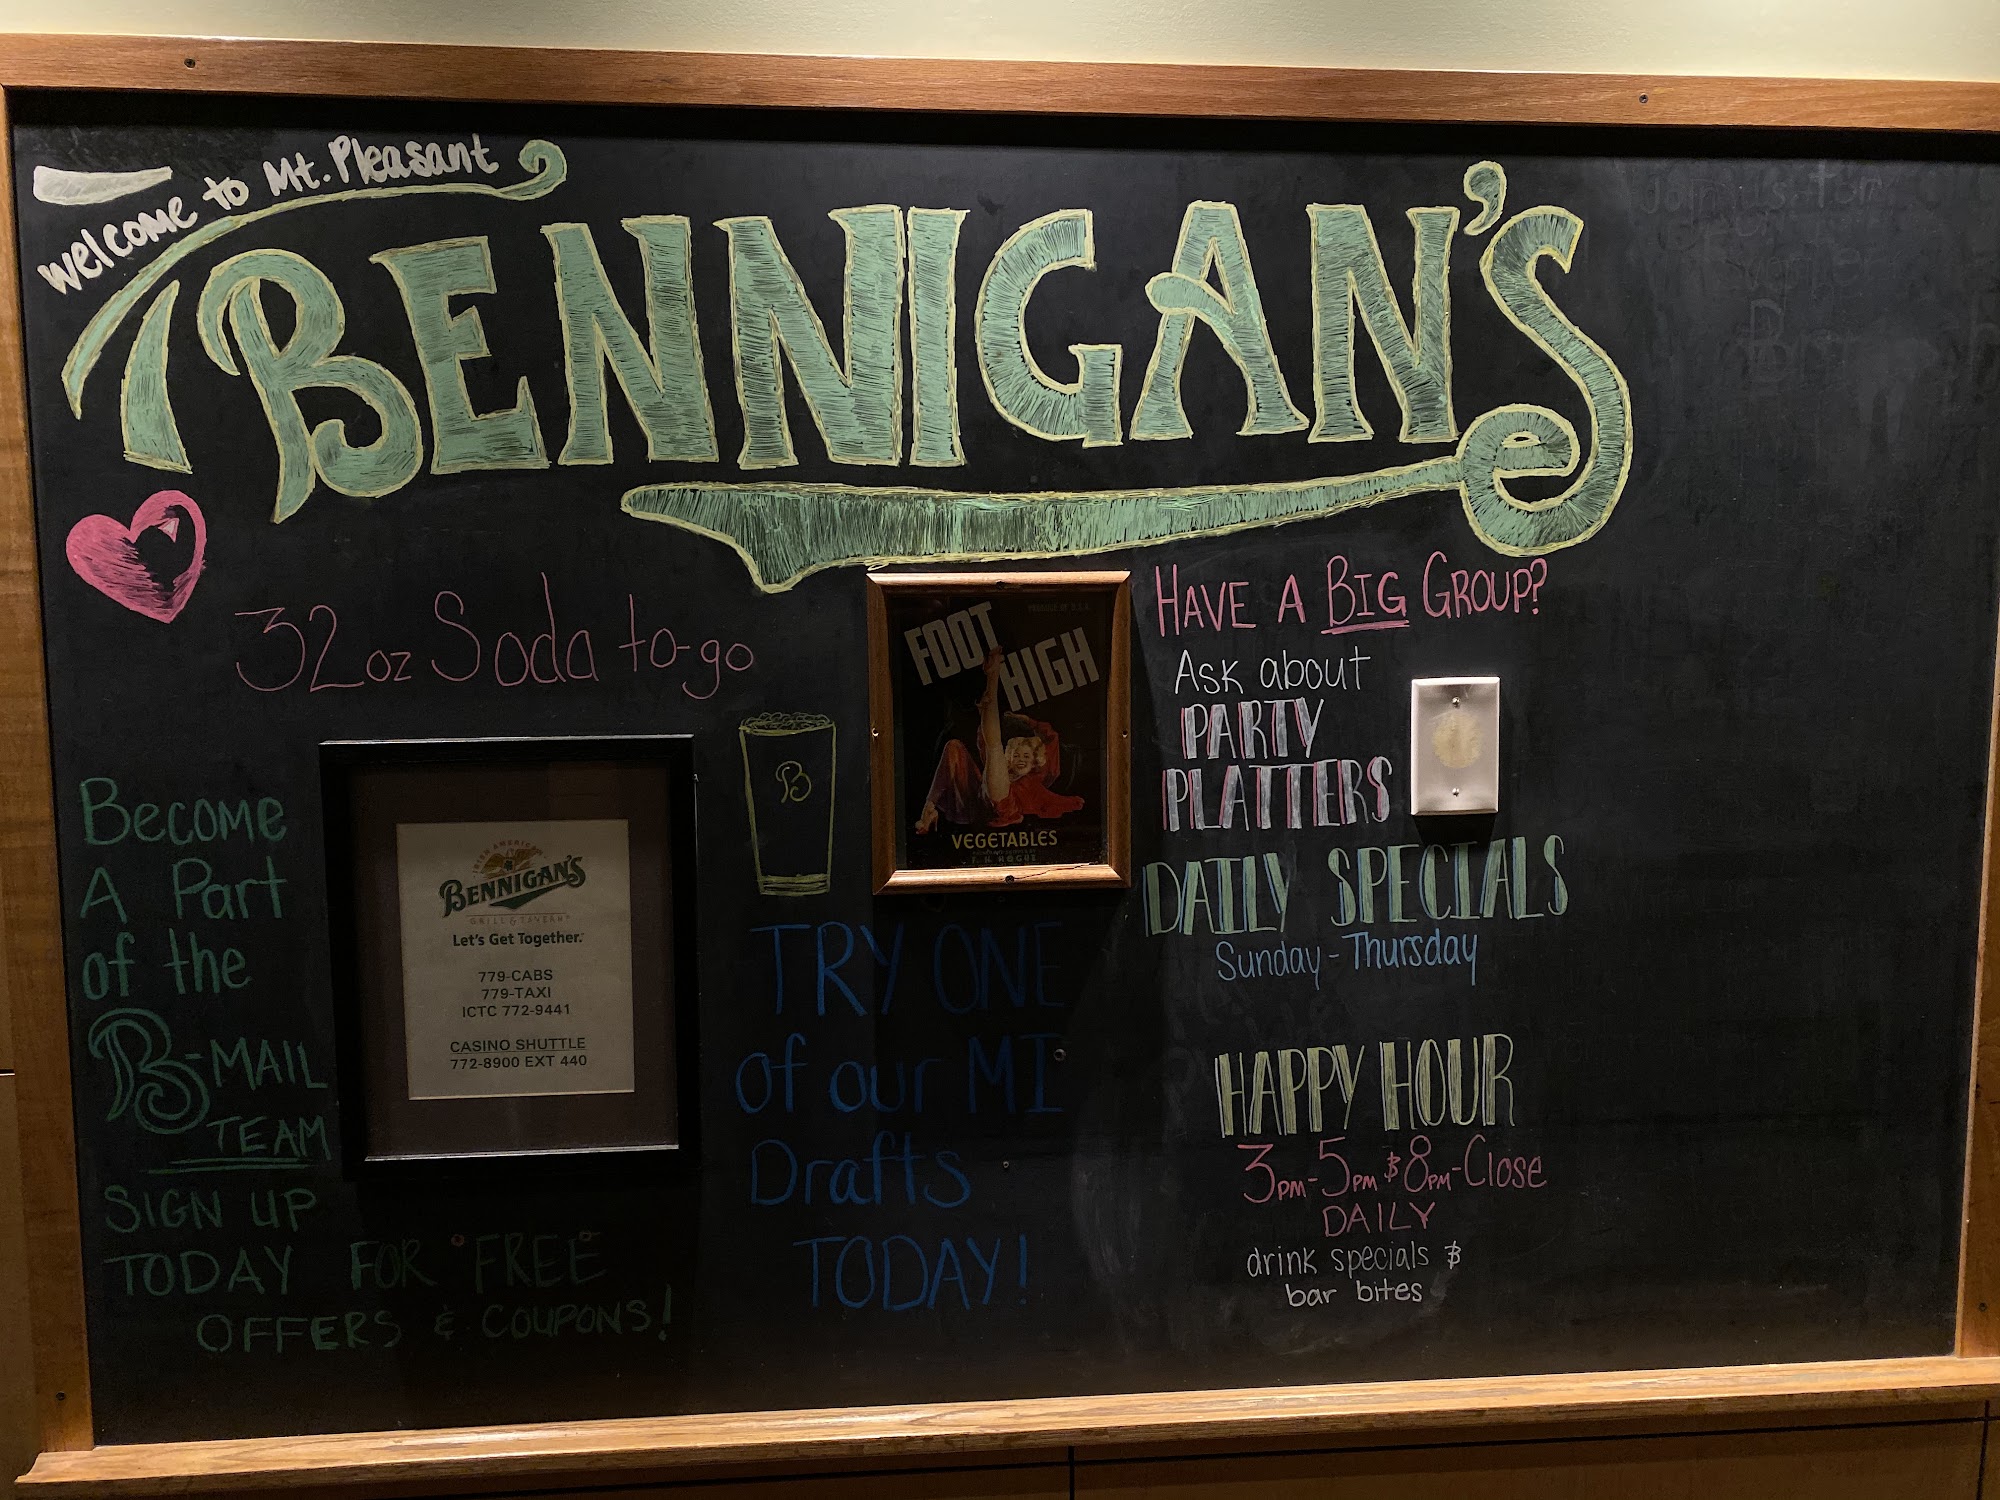 welcome to Mt. Pleasant
BENNIGAN'S
32oz Soda to-go
Become
A Part
of the
B-MAIL
TEAM
SIGN UP
TODAY FOR FREE
OFFERS & COUPONS!
IRISH AMERICAN
BENNIGAN'S
GRILL & TAVERN
Let's Get Together.
779-CABS
779-TAXI
ICTC 772-9441
CASINO SHUTTLE
772-8900 EXT 440
B
TRY ONE
of our MI
Drafts
TODAY!
FOOT
HIGH
VEGETABLES
HAVE A BIG GROUP?
Ask about
PARTY
PLATTERS
DAILY SPECIALS
Sunday-Thursday
HAPPY HOUR
3PM-5PM & 8PM-Close
DAILY
drink specials &
bar bites